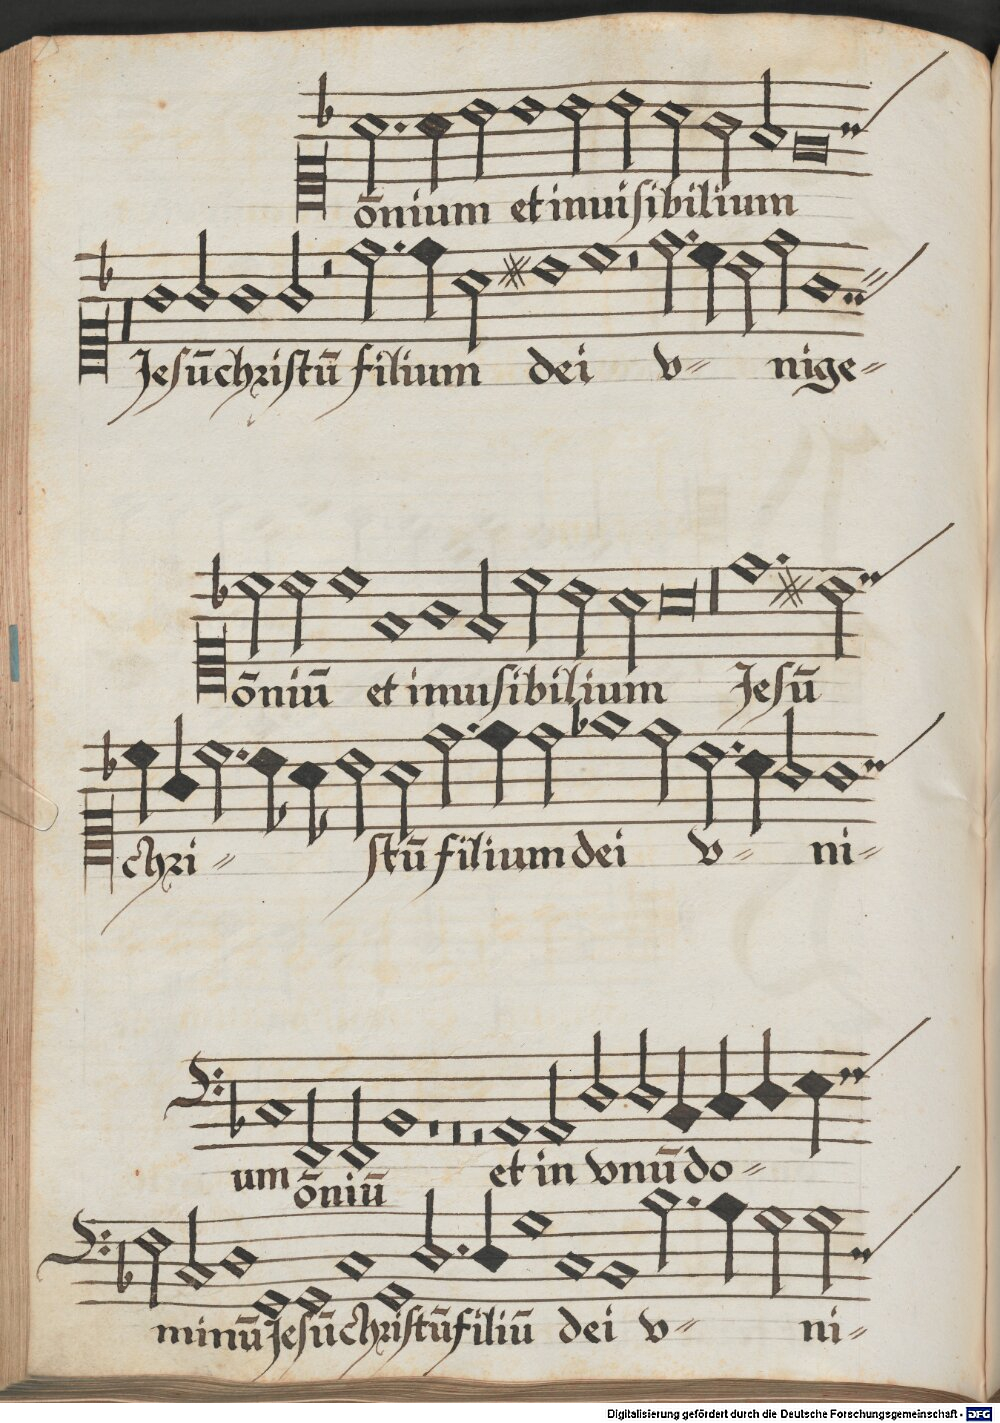 ōnium et inuisibilium
Jesū christū filium dei v= nige=
ōniū et inuisibilium Jesū
chri= stū filium dei v= ni=
um ōniū et in vnū do=
minū Jesū christū filiū dei v= ni=
Digitalisierung gefördert durch die Deutsche Forschungsgemeinschaft - DFG